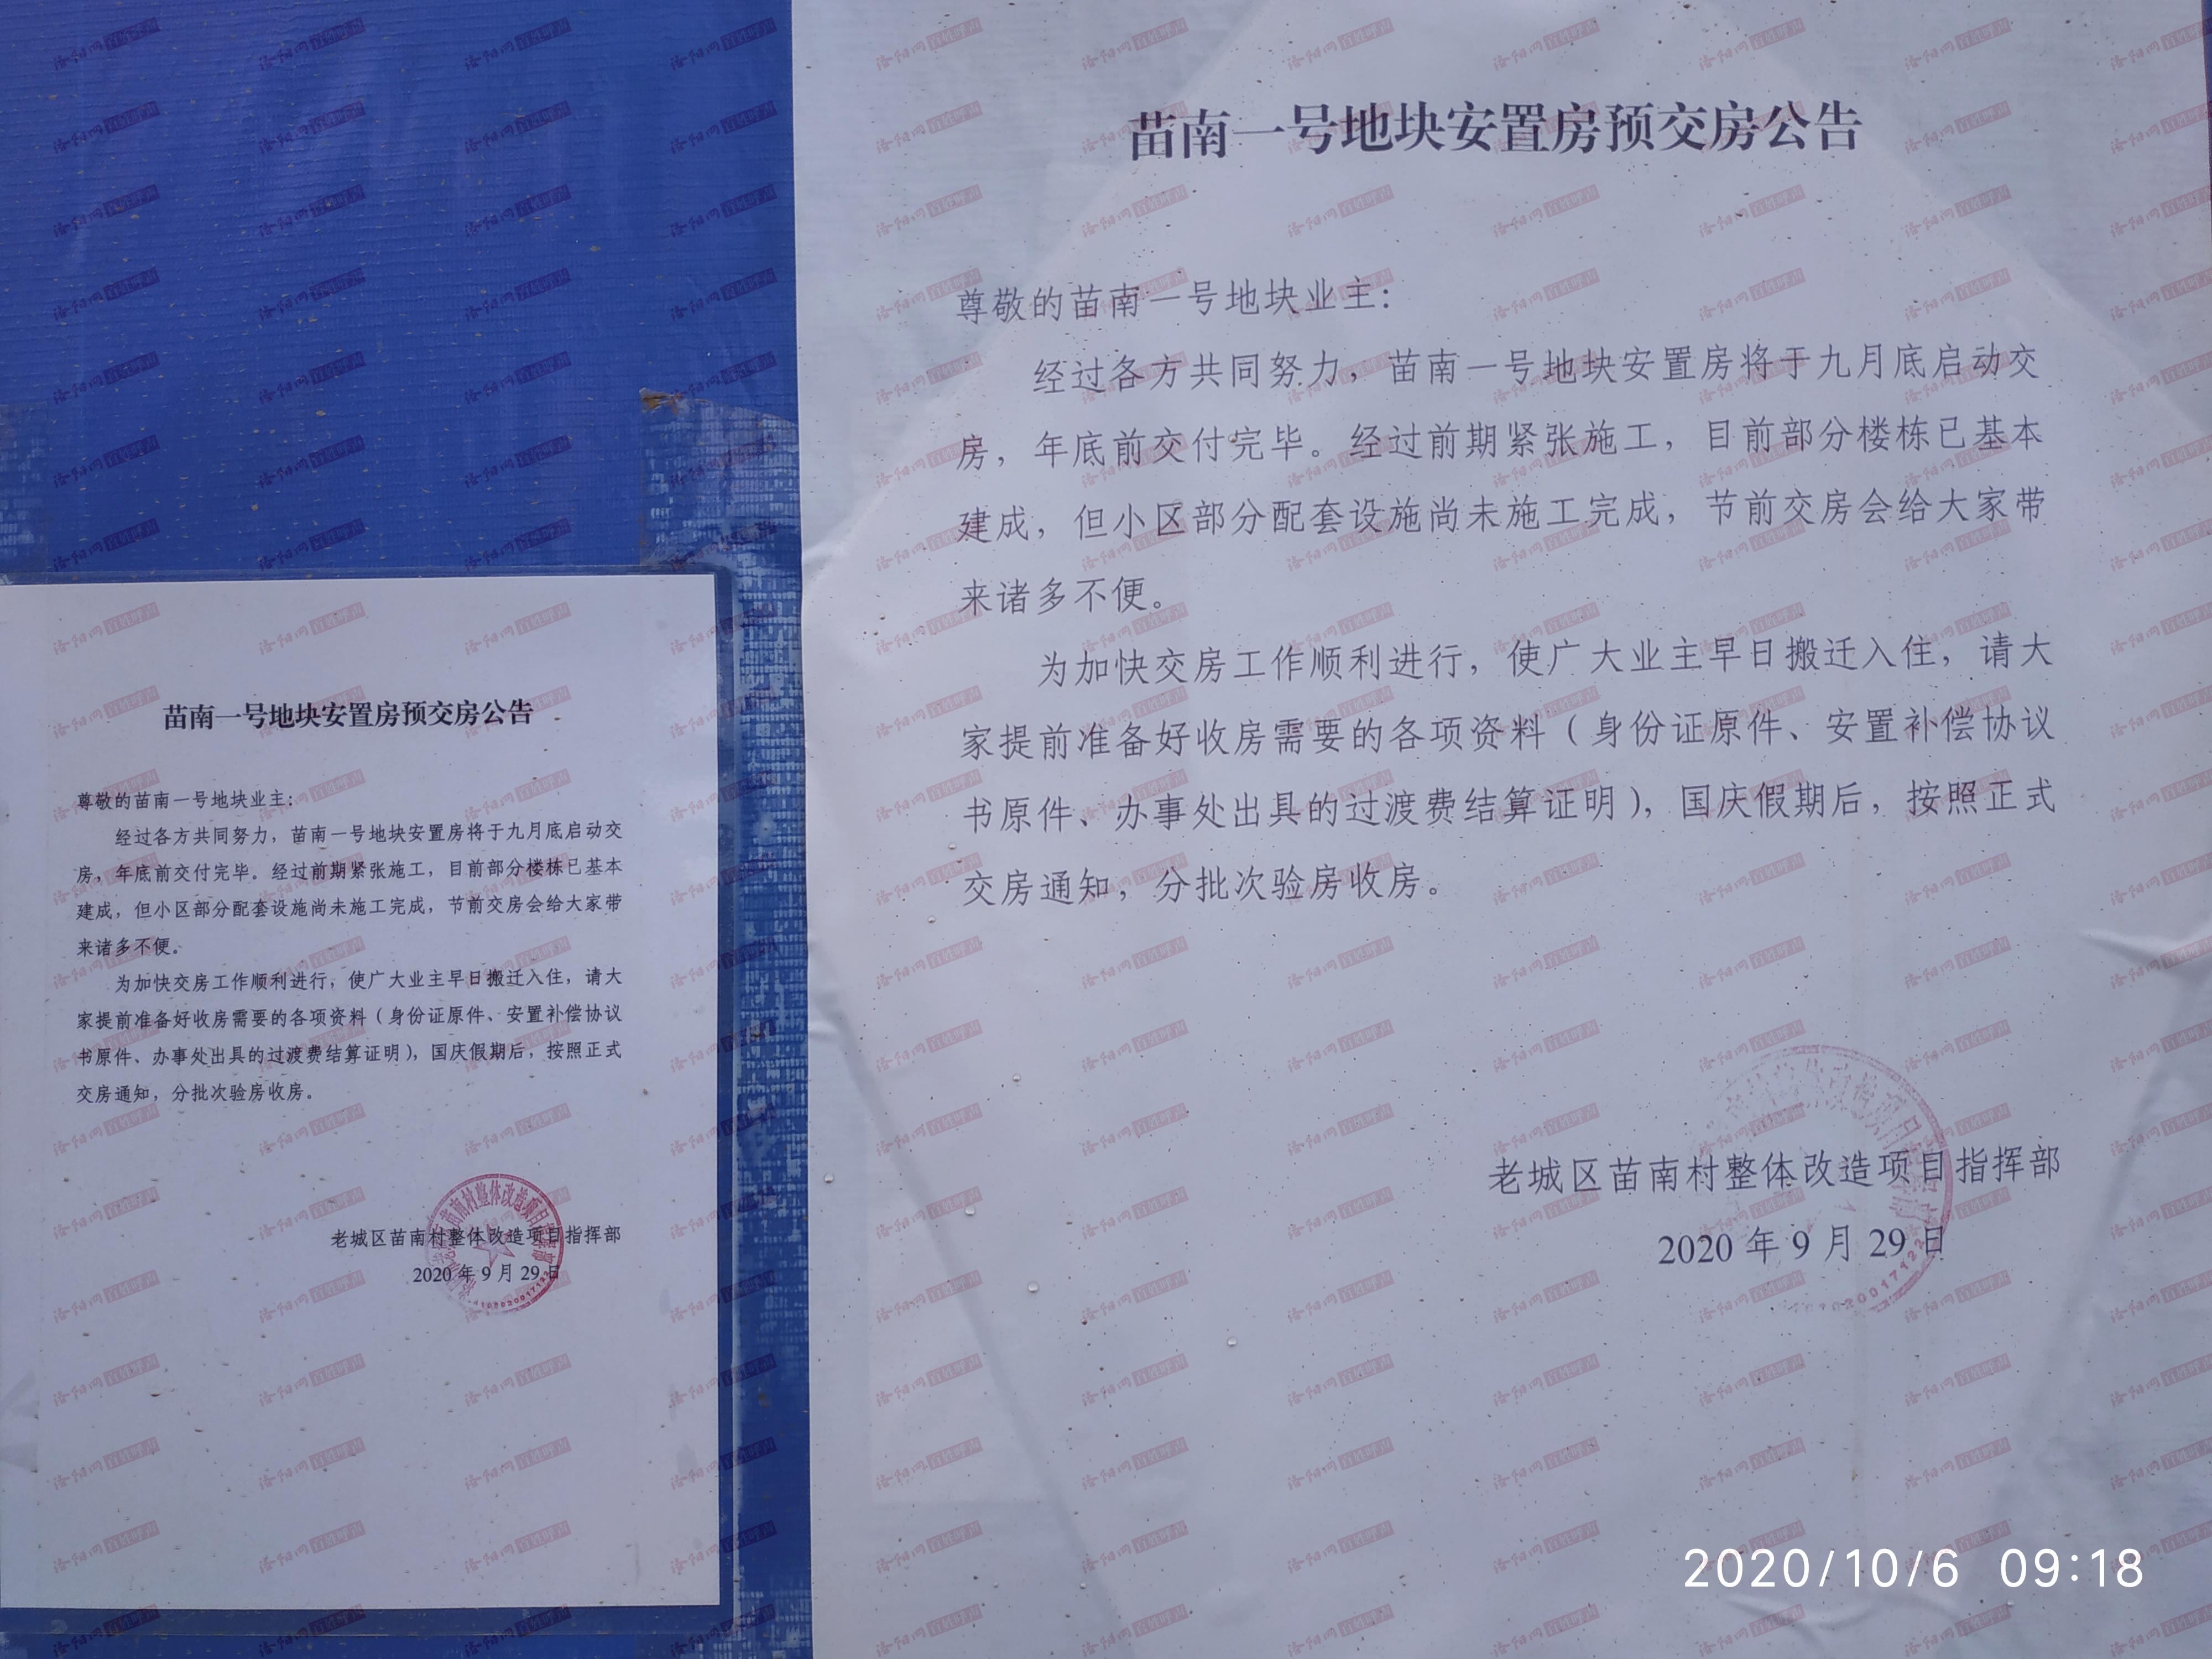 苗南一号地块安置房预交房公告
尊敬的苗南一号地块业主：
经过各方共同努力，苗南一号地块安置房将于九月底启动交
房，年底前交付完毕。经过前期紧张施工，目前部分楼栋已基本
建成，但小区部分配套设施尚未施工完成，节前交房会给大家带
来诸多不便。
为加快交房工作顺利进行，使广大业主早日搬迁入住，请大
家提前准备好收房需要的各项资料（身份证原件、安置补偿协议
书原件、办事处出具的过渡费结算证明），国庆假期后，按照正式
交房通知，分批次验房收房。
老城区苗南村整体改造项目指挥部
2020年9月29日
苗南一号地块安置房预交房公告
尊敬的苗南一号地块业主：
经过各方共同努力，苗南一号地块安置房将于九月底启动交
房，年底前交付完毕。经过前期紧张施工，目前部分楼栋已基本
建成，但小区部分配套设施尚未施工完成，节前交房会给大家带
来诸多不便。
为加快交房工作顺利进行，使广大业主早日搬迁入住，请大
家提前准备好收房需要的各项资料（身份证原件、安置补偿协议
书原件、办事处出具的过渡费结算证明），国庆假期后，按照正式
交房通知，分批次验房收房。
老城区苗南村整体改造项目指挥部
2020 年 9 月 29 日
2020/10/6 09:18
洛阳网 百姓呼声